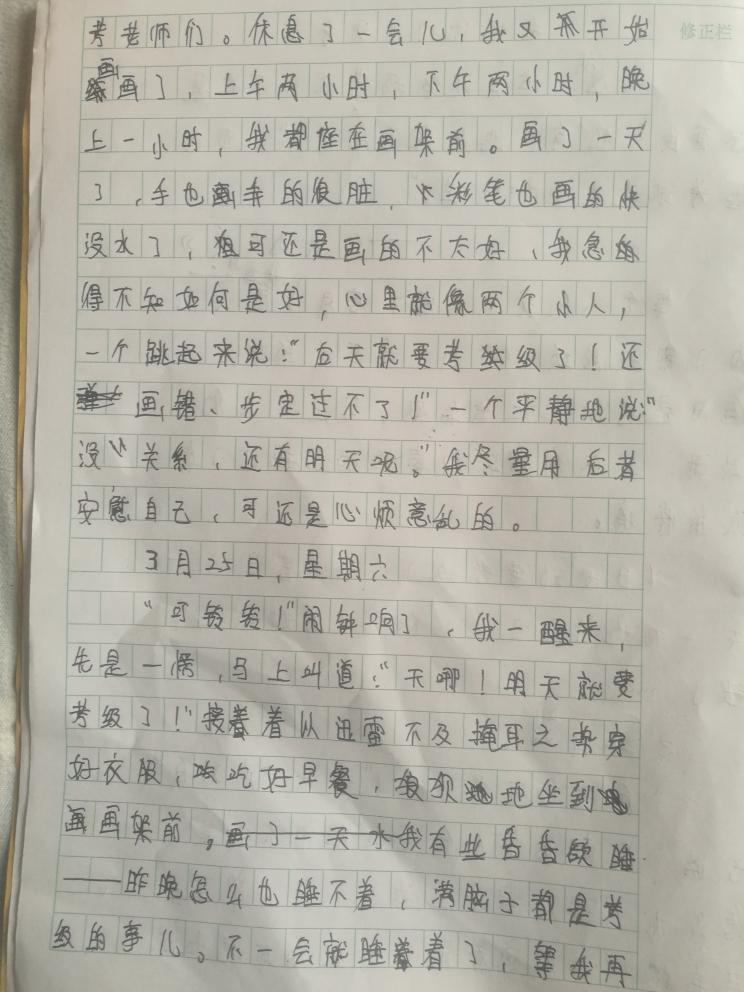 修正栏
考老师们。休息了一会儿，我又再开始
画画了，上午两小时，下午两小时，晚
上一小时，我都座在画架前。画了一天
了，手也弄的很脏，水彩笔也画的快
没水了，可还是画的不太好，我急的
得不知如何是好，心里就像两个小人，
一个跳起来说：“后天就要考级了！还
画错、步定过不了！”一个平静地说：“
没关系，还有明天呢。”我尽量用后者
安慰自己，可还是心烦意乱的。
3月25日，星期六
“可铃铃！”闹钟响了，我一醒来，
先是一愣，马上叫道：“天哪！明天就要
考级了！”接着着以迅雷不及掩耳之势穿
好衣服，吃好早餐，地坐到
画架前。我有些昏昏欲睡
——昨晚怎么也睡不着，满脑子都是考
级的事儿。不一会就睡着了，等我再